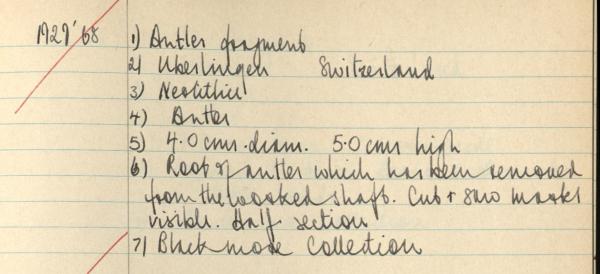 1929'68 1) Antler fragment
2) Uberlingen Switzerland
3) Neolithic
4) Antler
5) 4.0 cms. diam. 5.0 cms high
6) Root of antler which has been removed
from the worked shaft. Cut + saw marks
visible. Half section
7) Blackmore Collection